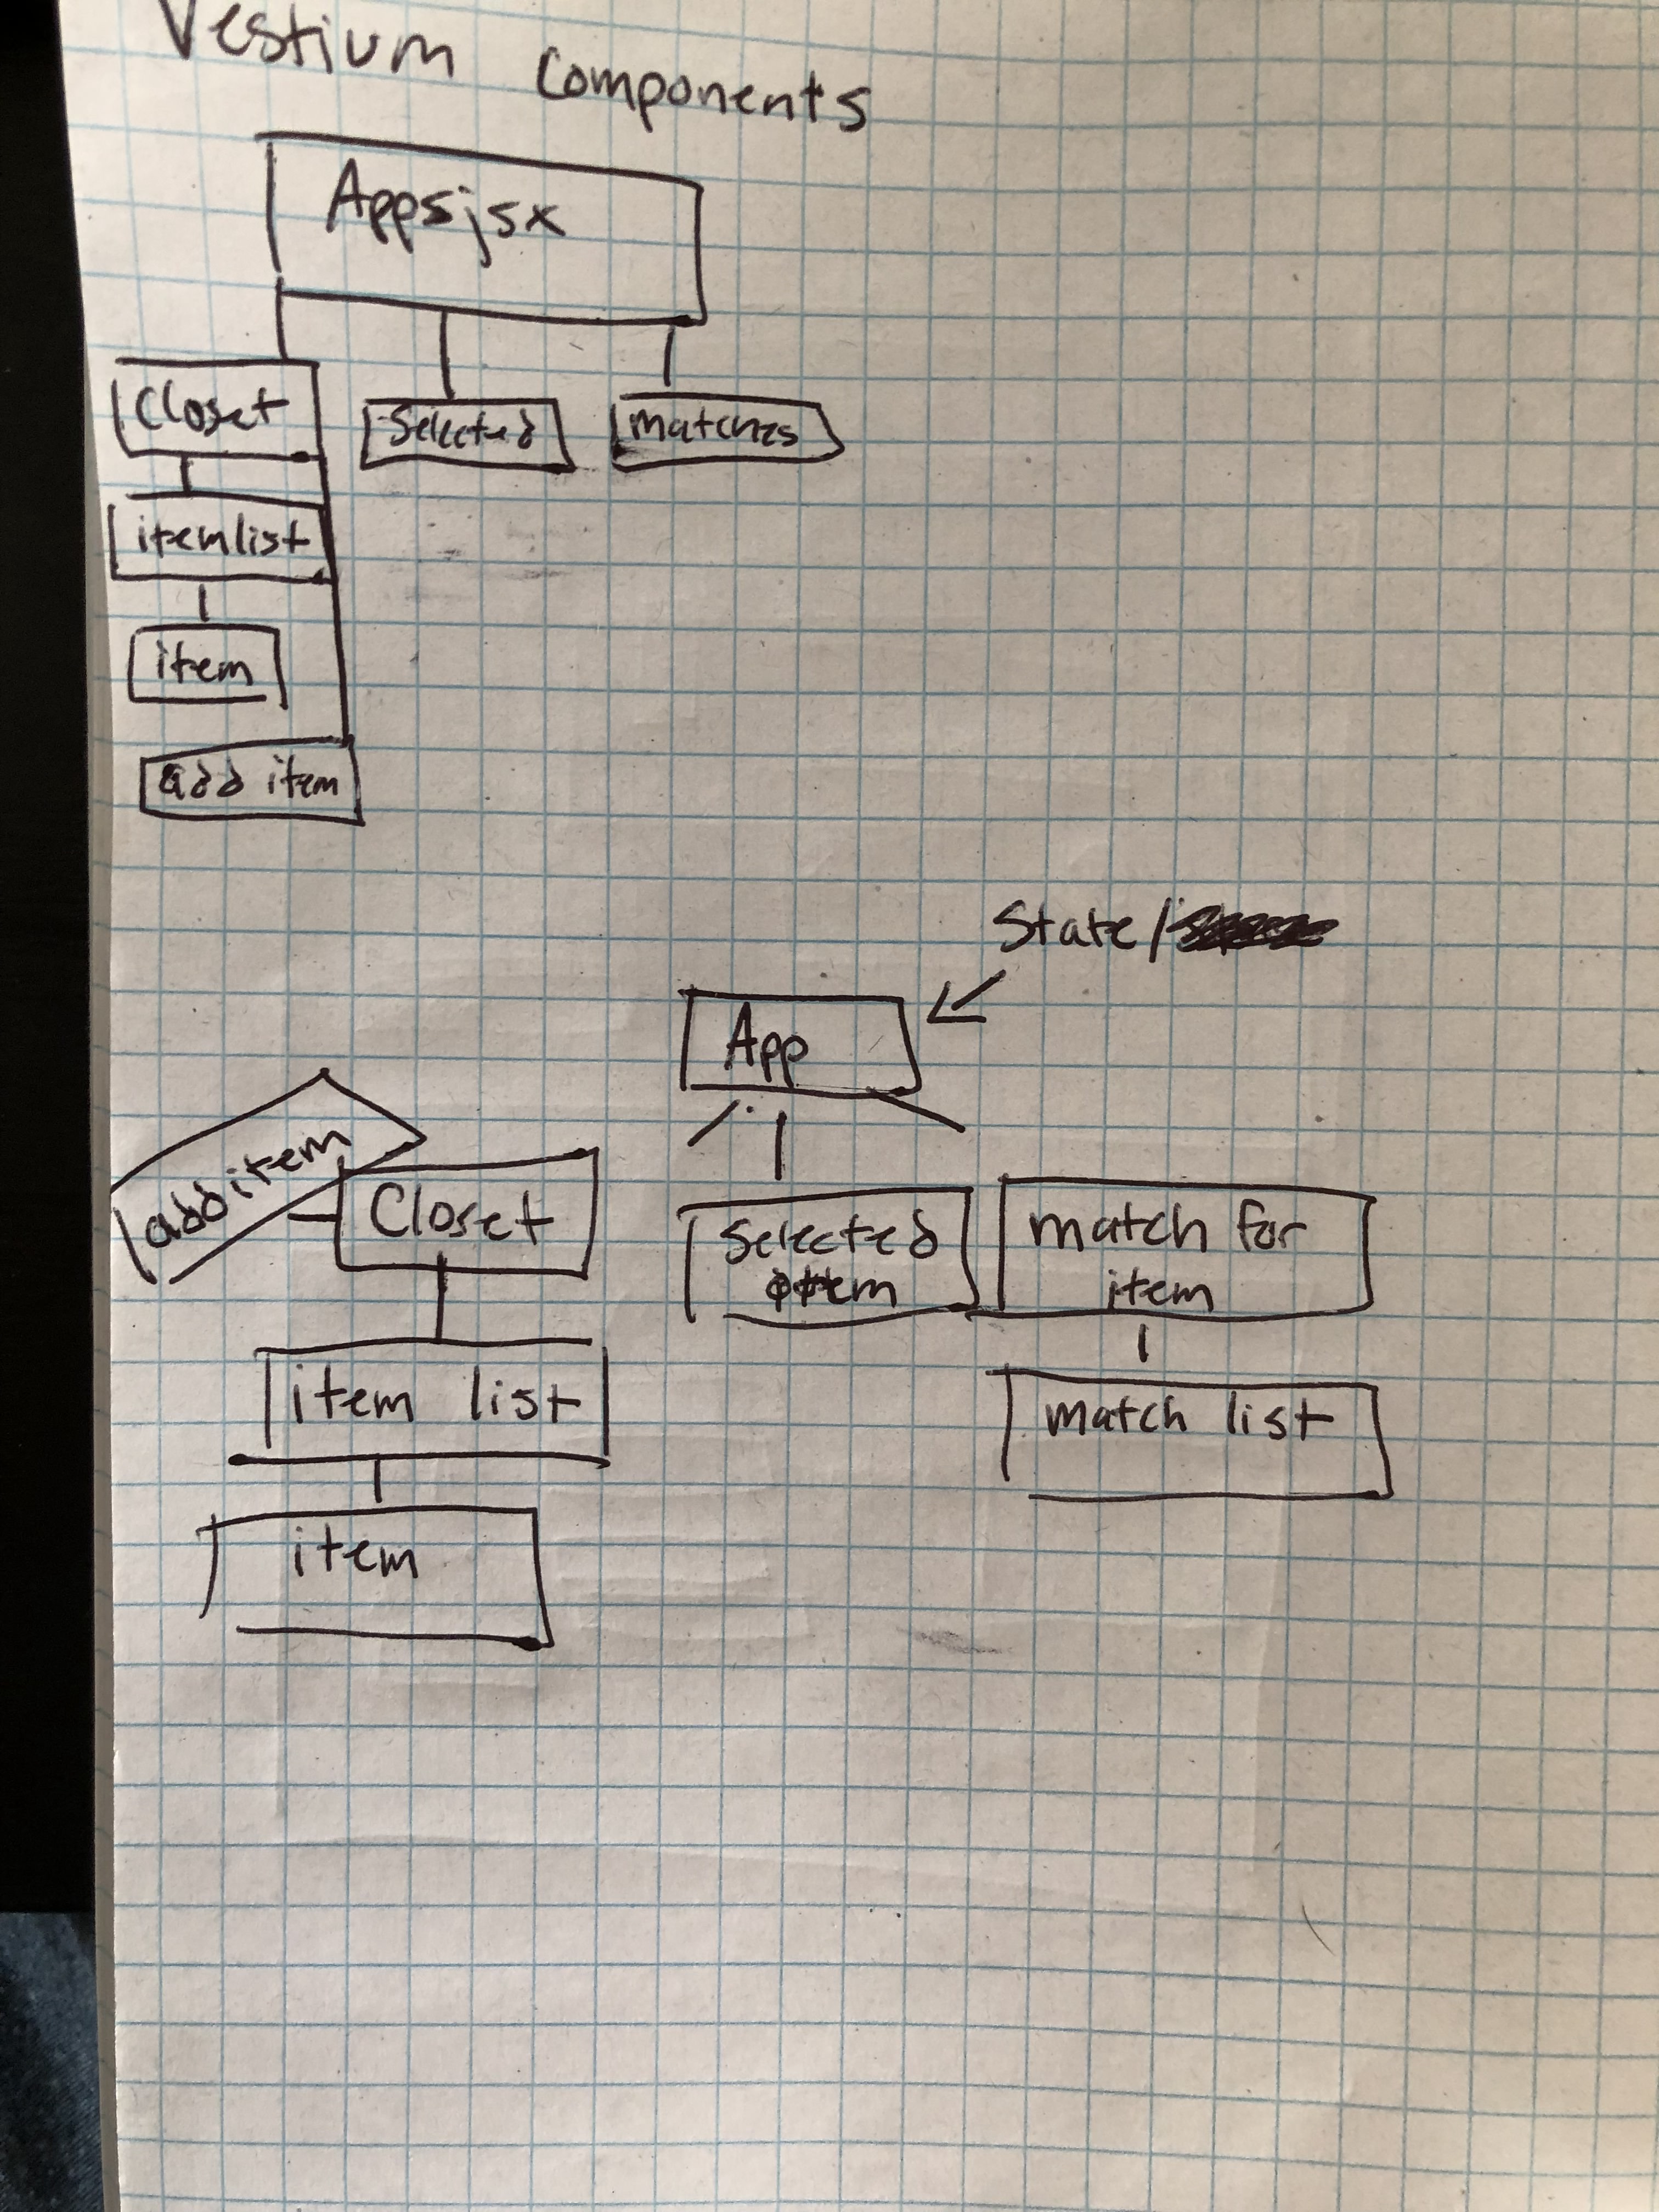 Vestium Components
Appsjsx
Closet
Selected
matches
itemlist
item
add item
State/
App
add item
Closet
Selected
item
match for
item
item list
match list
item